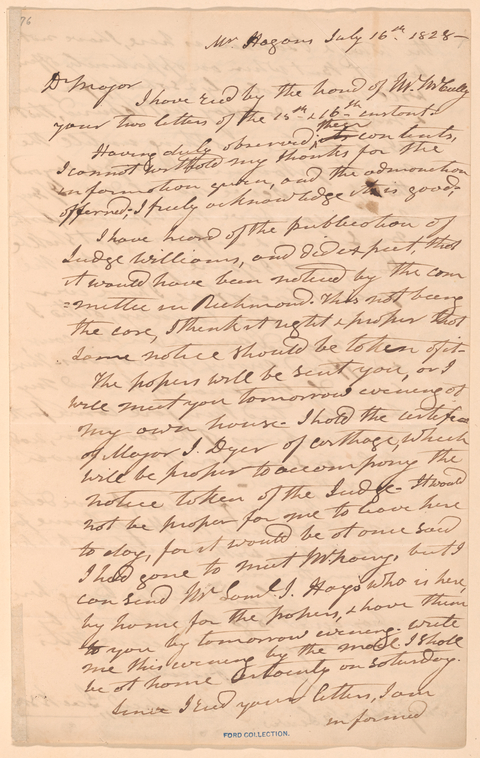 76
Mr. Hagans July 16th. 1828—
Dr Major
I have recd by the hand of Mr. McCully
your two letters of the 15th & 16th instant.
Having duly observed, their contents,
I cannot withold my thanks for the
information given, and the admonition
offerred; I truly acknowledge it is good,
I have heard of the publication of
Judge Williams, and did expect that
it would have been noticed by the com
=mittee in Richmond. This not being
the case, I think it right & proper that
some notice should be taken of it—
The papers will be sent you, or I
will meet you tomorrow evening at
my own house— I hold the certificate
of Major I. Dyer of carthage, which
will be proper to accompany the
notice taken of the Judge— It would
not be proper for me to leave here
to day, for it would be at once said
I had gone to meet but I
can send Mr Saml. J. Hays who is here,
by home for the papers, & have them
to you by tomorrow evening. write
me this evening by the mail I shall
be at home certainly on Saturday.
since I recd your letters, I am
informed
FORD COLLECTION.